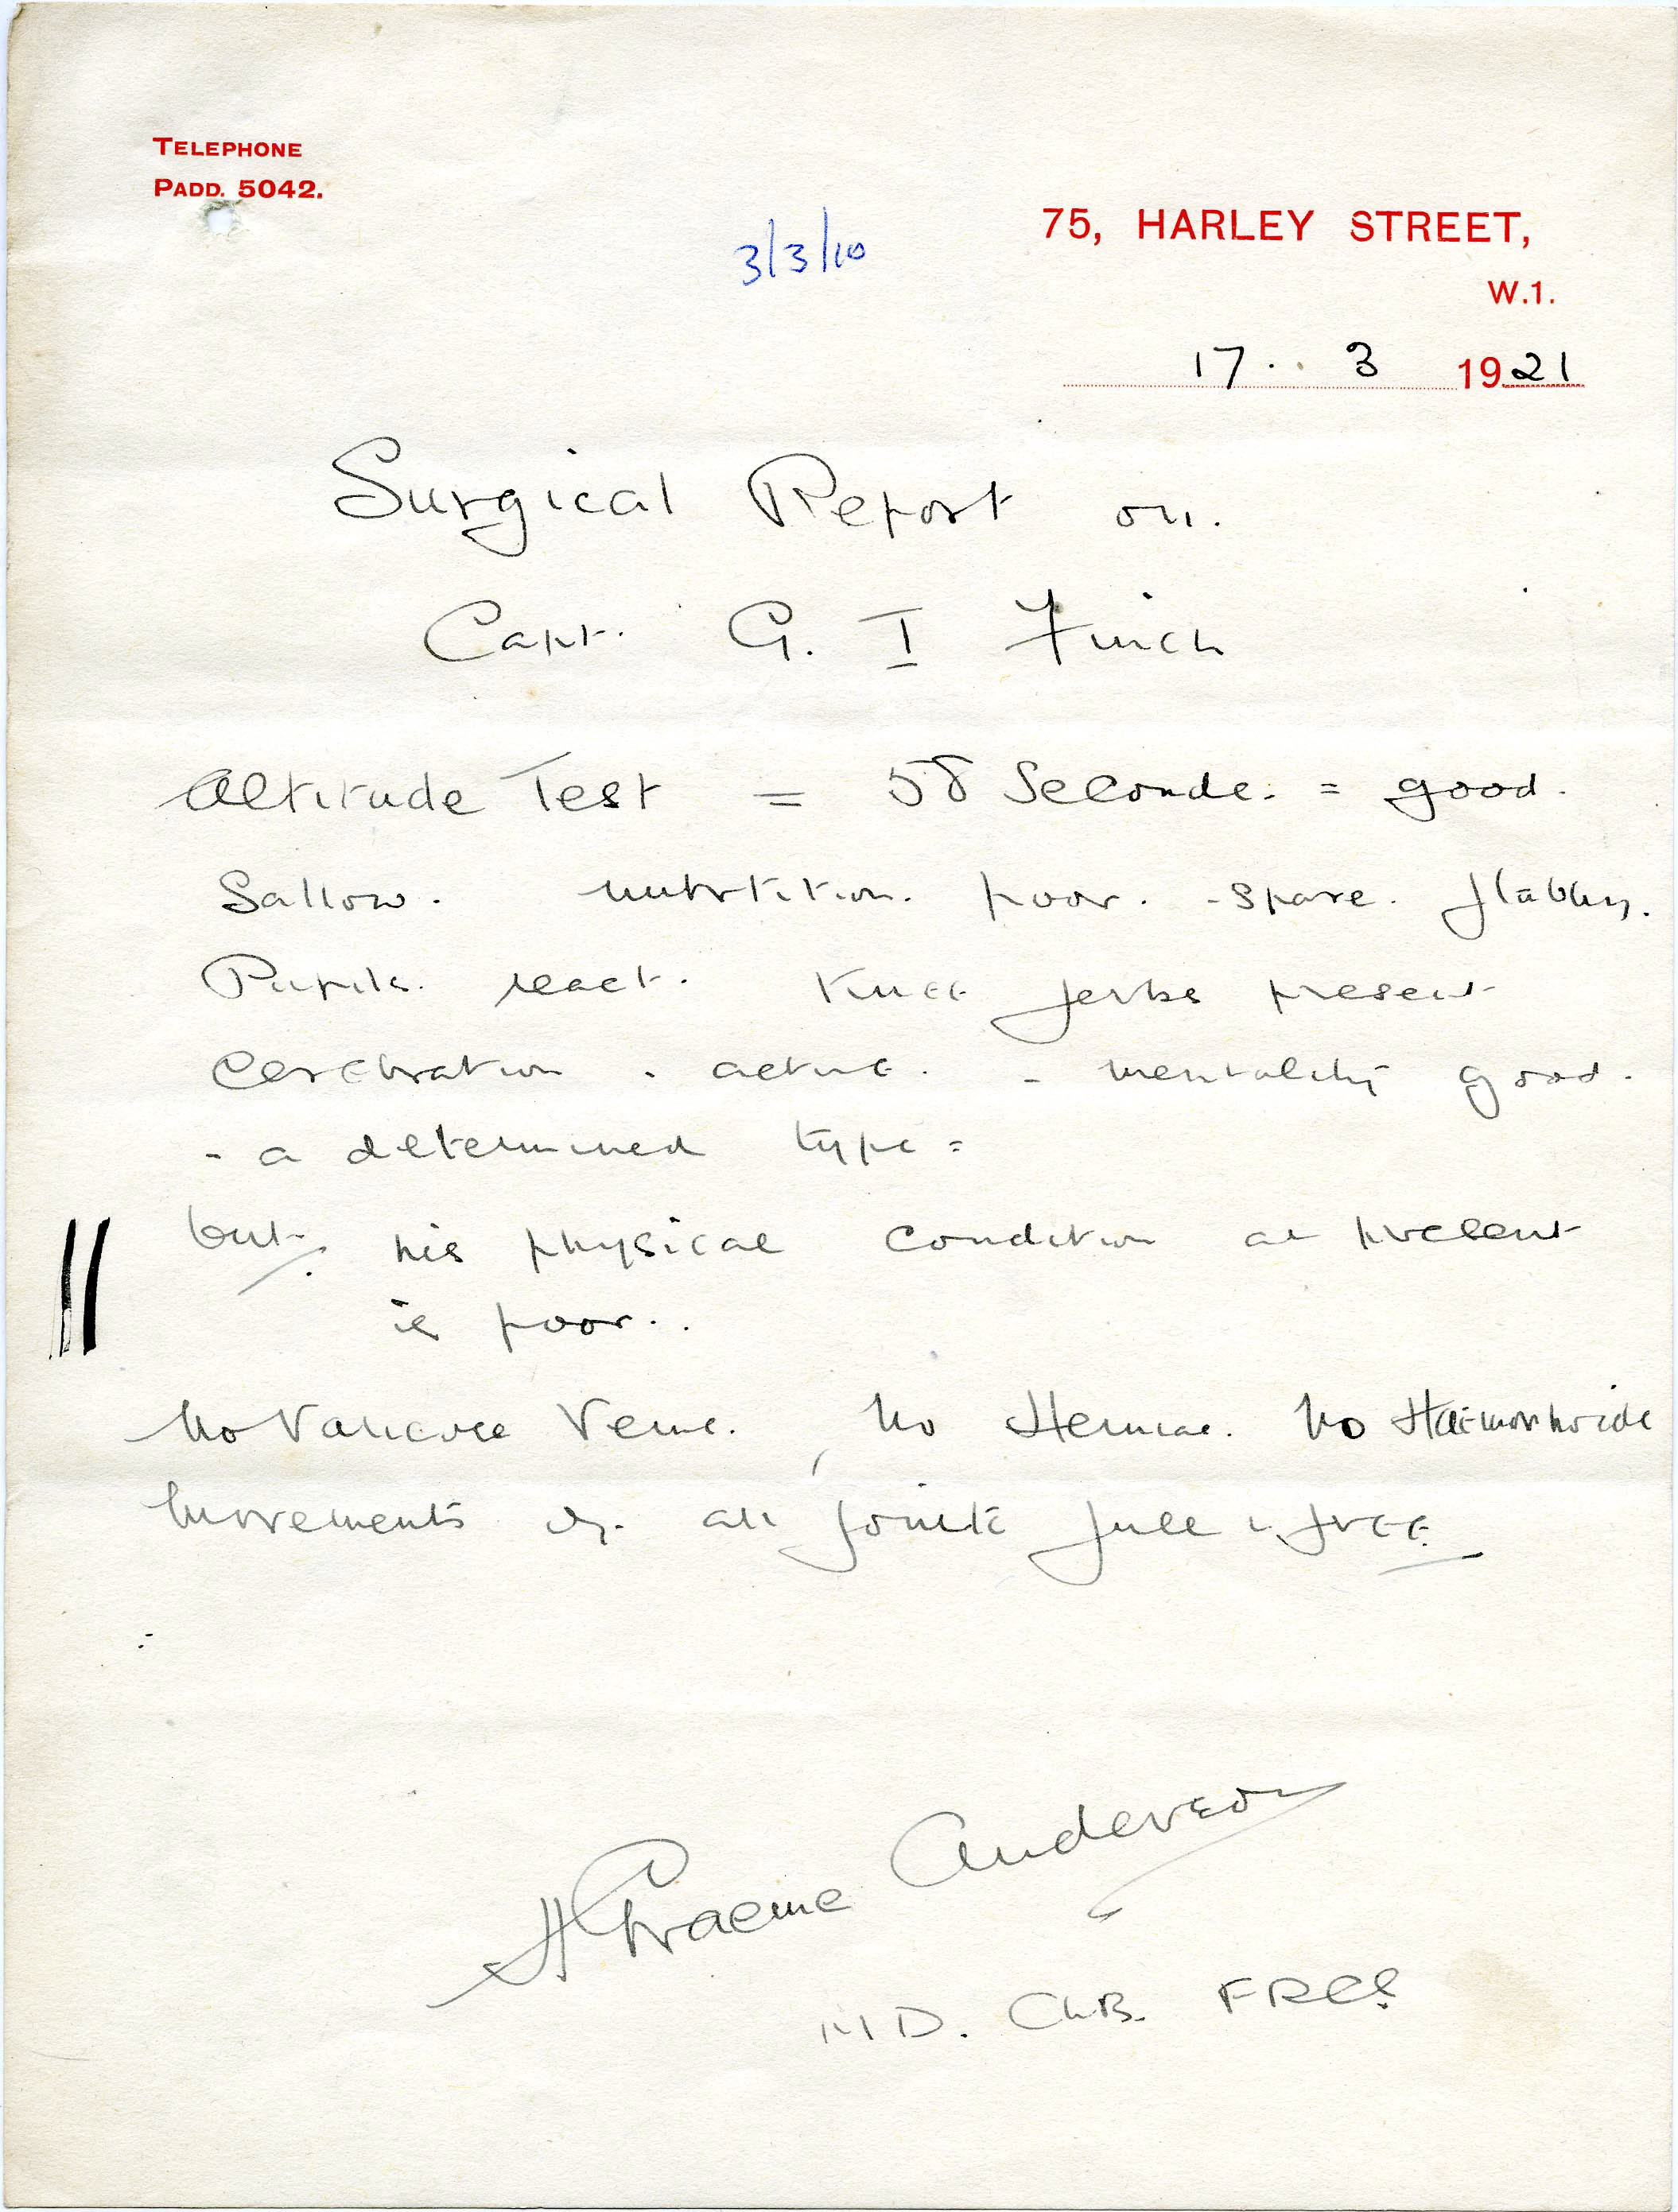 TELEPHONE
PADD. 5042.
3/3/10
75, HARLEY STREET,
W.1.
17. 3 1921
Surgical Report on.
Capt. G. I Finch
Altitude Test = 58 Seconds. = good.
Sallow. nutrition. poor. - spare. flabby.
Pupils. react. Knee jerks present
Cerebration. active. - mentality good.
- a determined type =
but. his physical condition at present
is poor..
No Varicose Veins. , No Herniae. No Haemorrhoids
Movements of all joints full & free
H Graeme Anderson
M D. Ch.B. FRCS